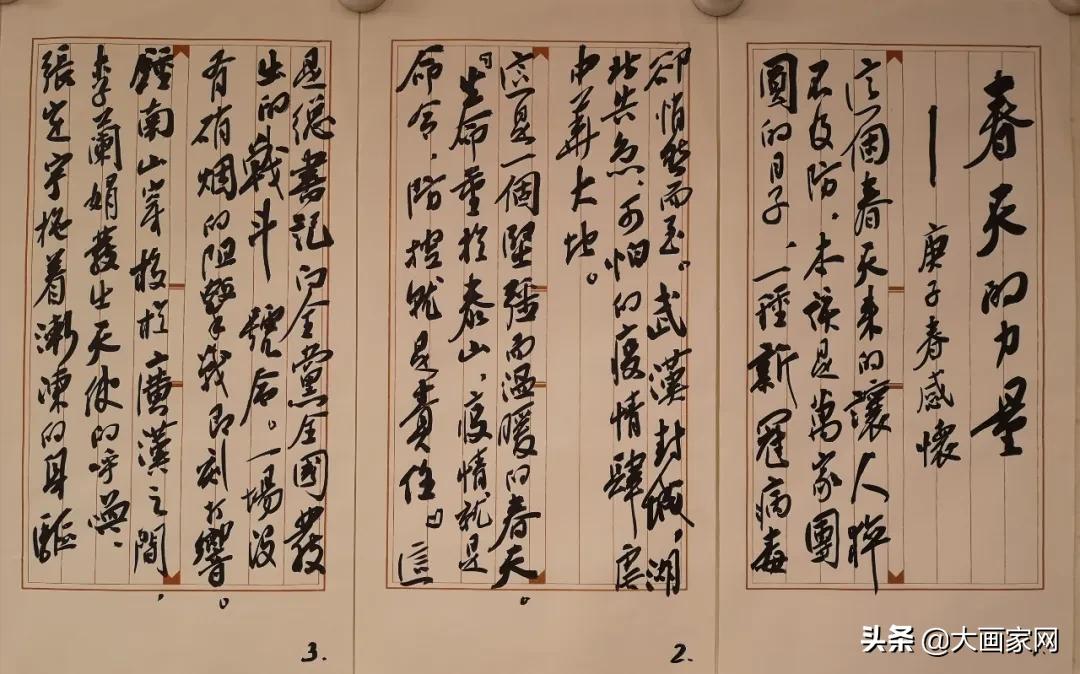 春天的力量
——庚子春感懷
這個春天來的讓人猝
不及防，本該是萬家團
圓的日子，一種新冠病毒
卻悄然而至。武漢封城，湖
北告急，可怕的疫情肆虐
中華大地。
這是一個堅強而溫暖的春天。
『生命重於泰山，疫情就是
命令，防控就是責任。』這
是總書記向全黨全國發
出的戰斗號令。一場沒
有硝烟的阻擊戰即刻打響。
鍾南山穿梭於廣漢之間，
李蘭娟發出天使的呼喚、
張定宇拖着漸凍的身軀
2.
3.
头条 @大画家网